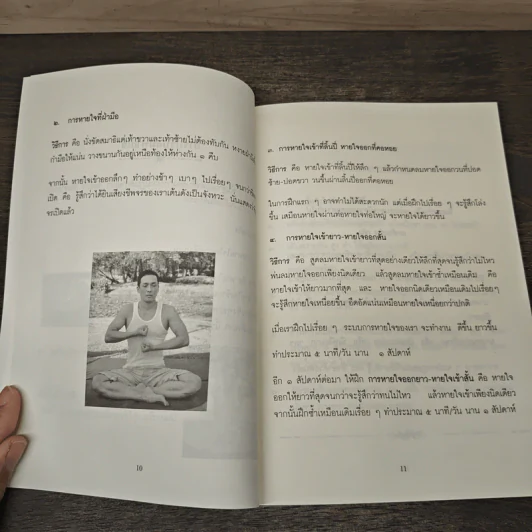 ๒. การหายใจที่ฝ่ามือ
วิธีการ คือ นั่งขัดสมาธิแต่เท้าขวาและเท้าซ้ายไม่ต้องทับกัน หงายฝ่ามือ
กำมือให้แน่น วางขนานกันอยู่เหนือท้องให้ห่างกัน ๑ คืบ
จากนั้น หายใจออกลึกๆ ทำอย่างช้าๆ เบาๆ ไปเรื่อยๆ
เปิด คือ รู้สึกว่าได้ยินเสียงชีพจรของเราเต้นดังเป็นจังหวะ นั่นแสดงว่า
จะเปิดแล้ว
10
๓. การหายใจเข้าที่ลิ้นปี่ หายใจออกที่คอหอย
วิธีการ คือ หายใจเข้าที่ลิ้นปี่ให้ลึก ๆ แล้วกำหนดลมหายใจออกวนที่ปอด
ซ้าย-ปอดขวา วนขึ้นผ่านลิ้นปี่ออกที่คอหอย
ในการฝึกแรก ๆ อาจทำไม่ได้สะดวกนัก แต่เมื่อฝึกไปเรื่อย ๆ จะรู้สึกโล่ง
ขึ้น เสมือนหายใจผ่านท่อหายใจท่อใหญ่ จะหายใจได้ยาวขึ้น
๔. การหายใจเข้ายาว-หายใจออกสั้น
วิธีการ คือ สูดลมหายใจเข้ายาวที่สุดอย่างเดียวให้ลึกที่สุดจนรู้สึกว่าไม่ไหว
พ่นลมหายใจออกเพียงนิดเดียว แล้วสูดลมหายใจเข้าซ้ำเหมือนเดิม คือ
หายใจเข้าให้ยาวมากที่สุด และ หายใจออกนิดเดียวเหมือนเดิมไปเรื่อยๆ
จะรู้สึกหายใจเหนื่อยขึ้น อึดอัดแน่นเหมือนหายใจเหนื่อยกว่าปกติ
เมื่อเราฝึกไปเรื่อย ๆ ระบบการหายใจของเรา จะทำงาน ดีขึ้น ยาวขึ้น
ทำประมาณ ๕ นาที/วัน นาน ๑ สัปดาห์
อีก ๑ สัปดาห์ต่อมา ให้ฝึก การหายใจออกยาว-หายใจเข้าสั้น คือ หายใจ
ออกให้ยาวที่สุดจนกว่าจะรู้สึกว่าทนไม่ไหว แล้วหายใจเข้าเพียงนิดเดียว
จากนั้นฝึกซ้ำเหมือนเดิมเรื่อย ๆ ทำประมาณ ๕ นาที/วัน นาน ๑ สัปดาห์
11